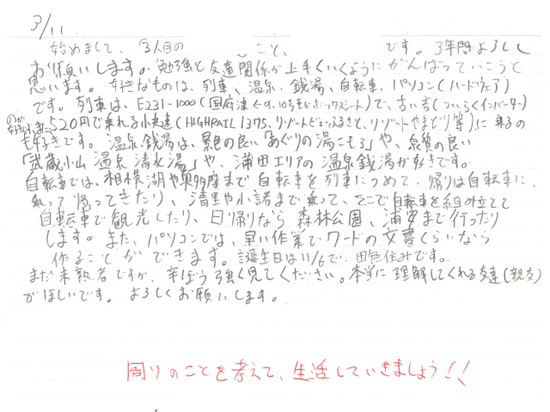 3/11
始めまして、3人目の　こと、　です。3年間よろしく
お願いします。勉強と友達関係が上手くいくようにがんばっていこうと
思います。好きなものは、列車、温泉、銭湯、自転車、パソコン(ハードウェア)
です。列車は、E231-1000(国府津
520円で乗れる小海線(HIGHRAIL 1375、リゾートビューふるさと、リゾートやまどり等)に乗るの
も好きです。温泉銭湯は、景色の良い「みぐりの湯こもろ」や、泉質の良い
「武蔵小山温泉 清水湯」や、蒲田エリアの温泉銭湯が好きです。
自転車では、相模湖や奥多摩まで自転車を列車につめて、帰りは自転車に
乗って帰ってきたり、清里や小諸まで乗って、そこで自転車を組み立てて
自転車で観光したり、日帰りなら森林公園、浦安まで行ったり
します。また、パソコンでは、早い作業でワードの文書くらいなら
作ることができます。誕生日は11/6で、田無住みです。
まだ未熟者ですが、辛ぼう強く見てください。本当に理解してくれる友達(親友)
がほしいです。よろしくお願いします。
周りのことを考えて、生活していきましょう!!